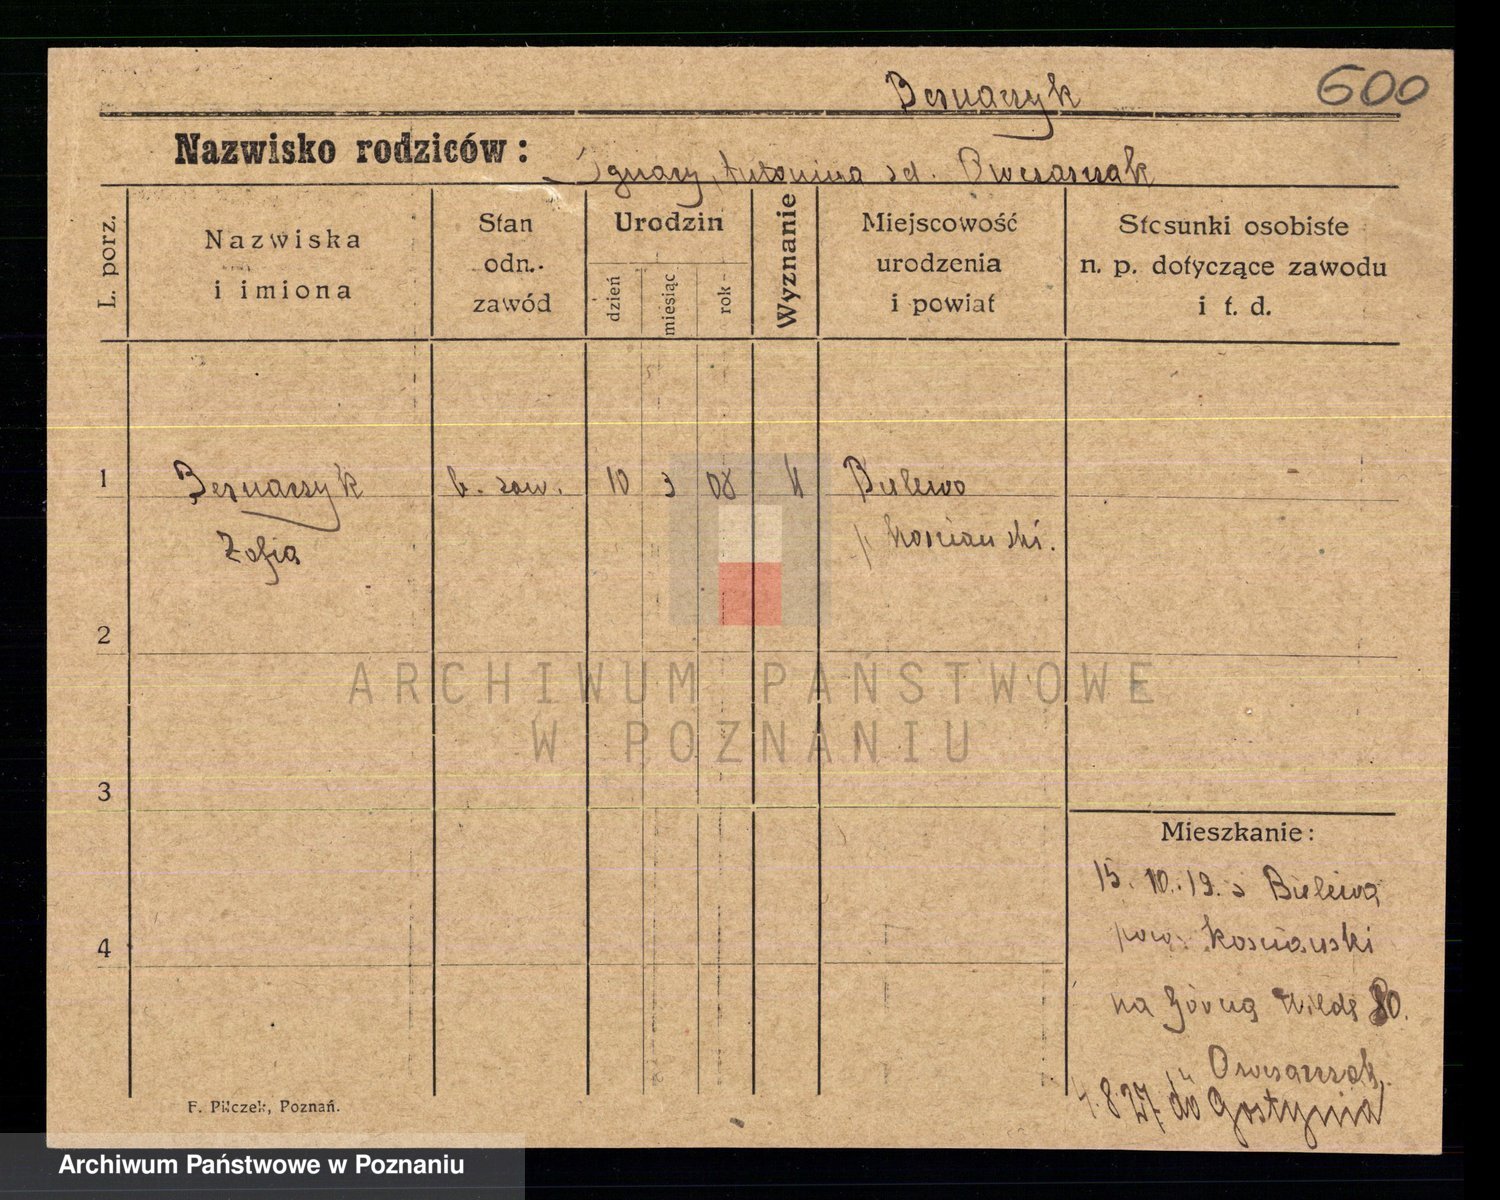 Bernaczyk
600
Nazwisko rodziców:
Ignacy, Antonina zd. Owczarzak
L. porz.
Nazwiska
i imiona
Stan
odn.
zawód
Urodzin
dzień
miesiąc
rok
Wyznanie
Miejscowość
urodzenia
i powiat
Stosunki osobiste
n. p. dotyczące zawodu
i t. d.
1
Bernaczyk
Zofia
b. zaw.
10
3
08
k
Bielewo
p. kościański.
2
3
4
Mieszkanie:
15. 10. 19. z Bielewa
pow. kościański
na Górną Wildę 80.
Owczarzak.
4.8.27. do Gostynia
F. Pilczek, Poznań.
ARCHIWUM PAŃSTWOWE
W POZNANIU
Archiwum Państwowe w Poznaniu